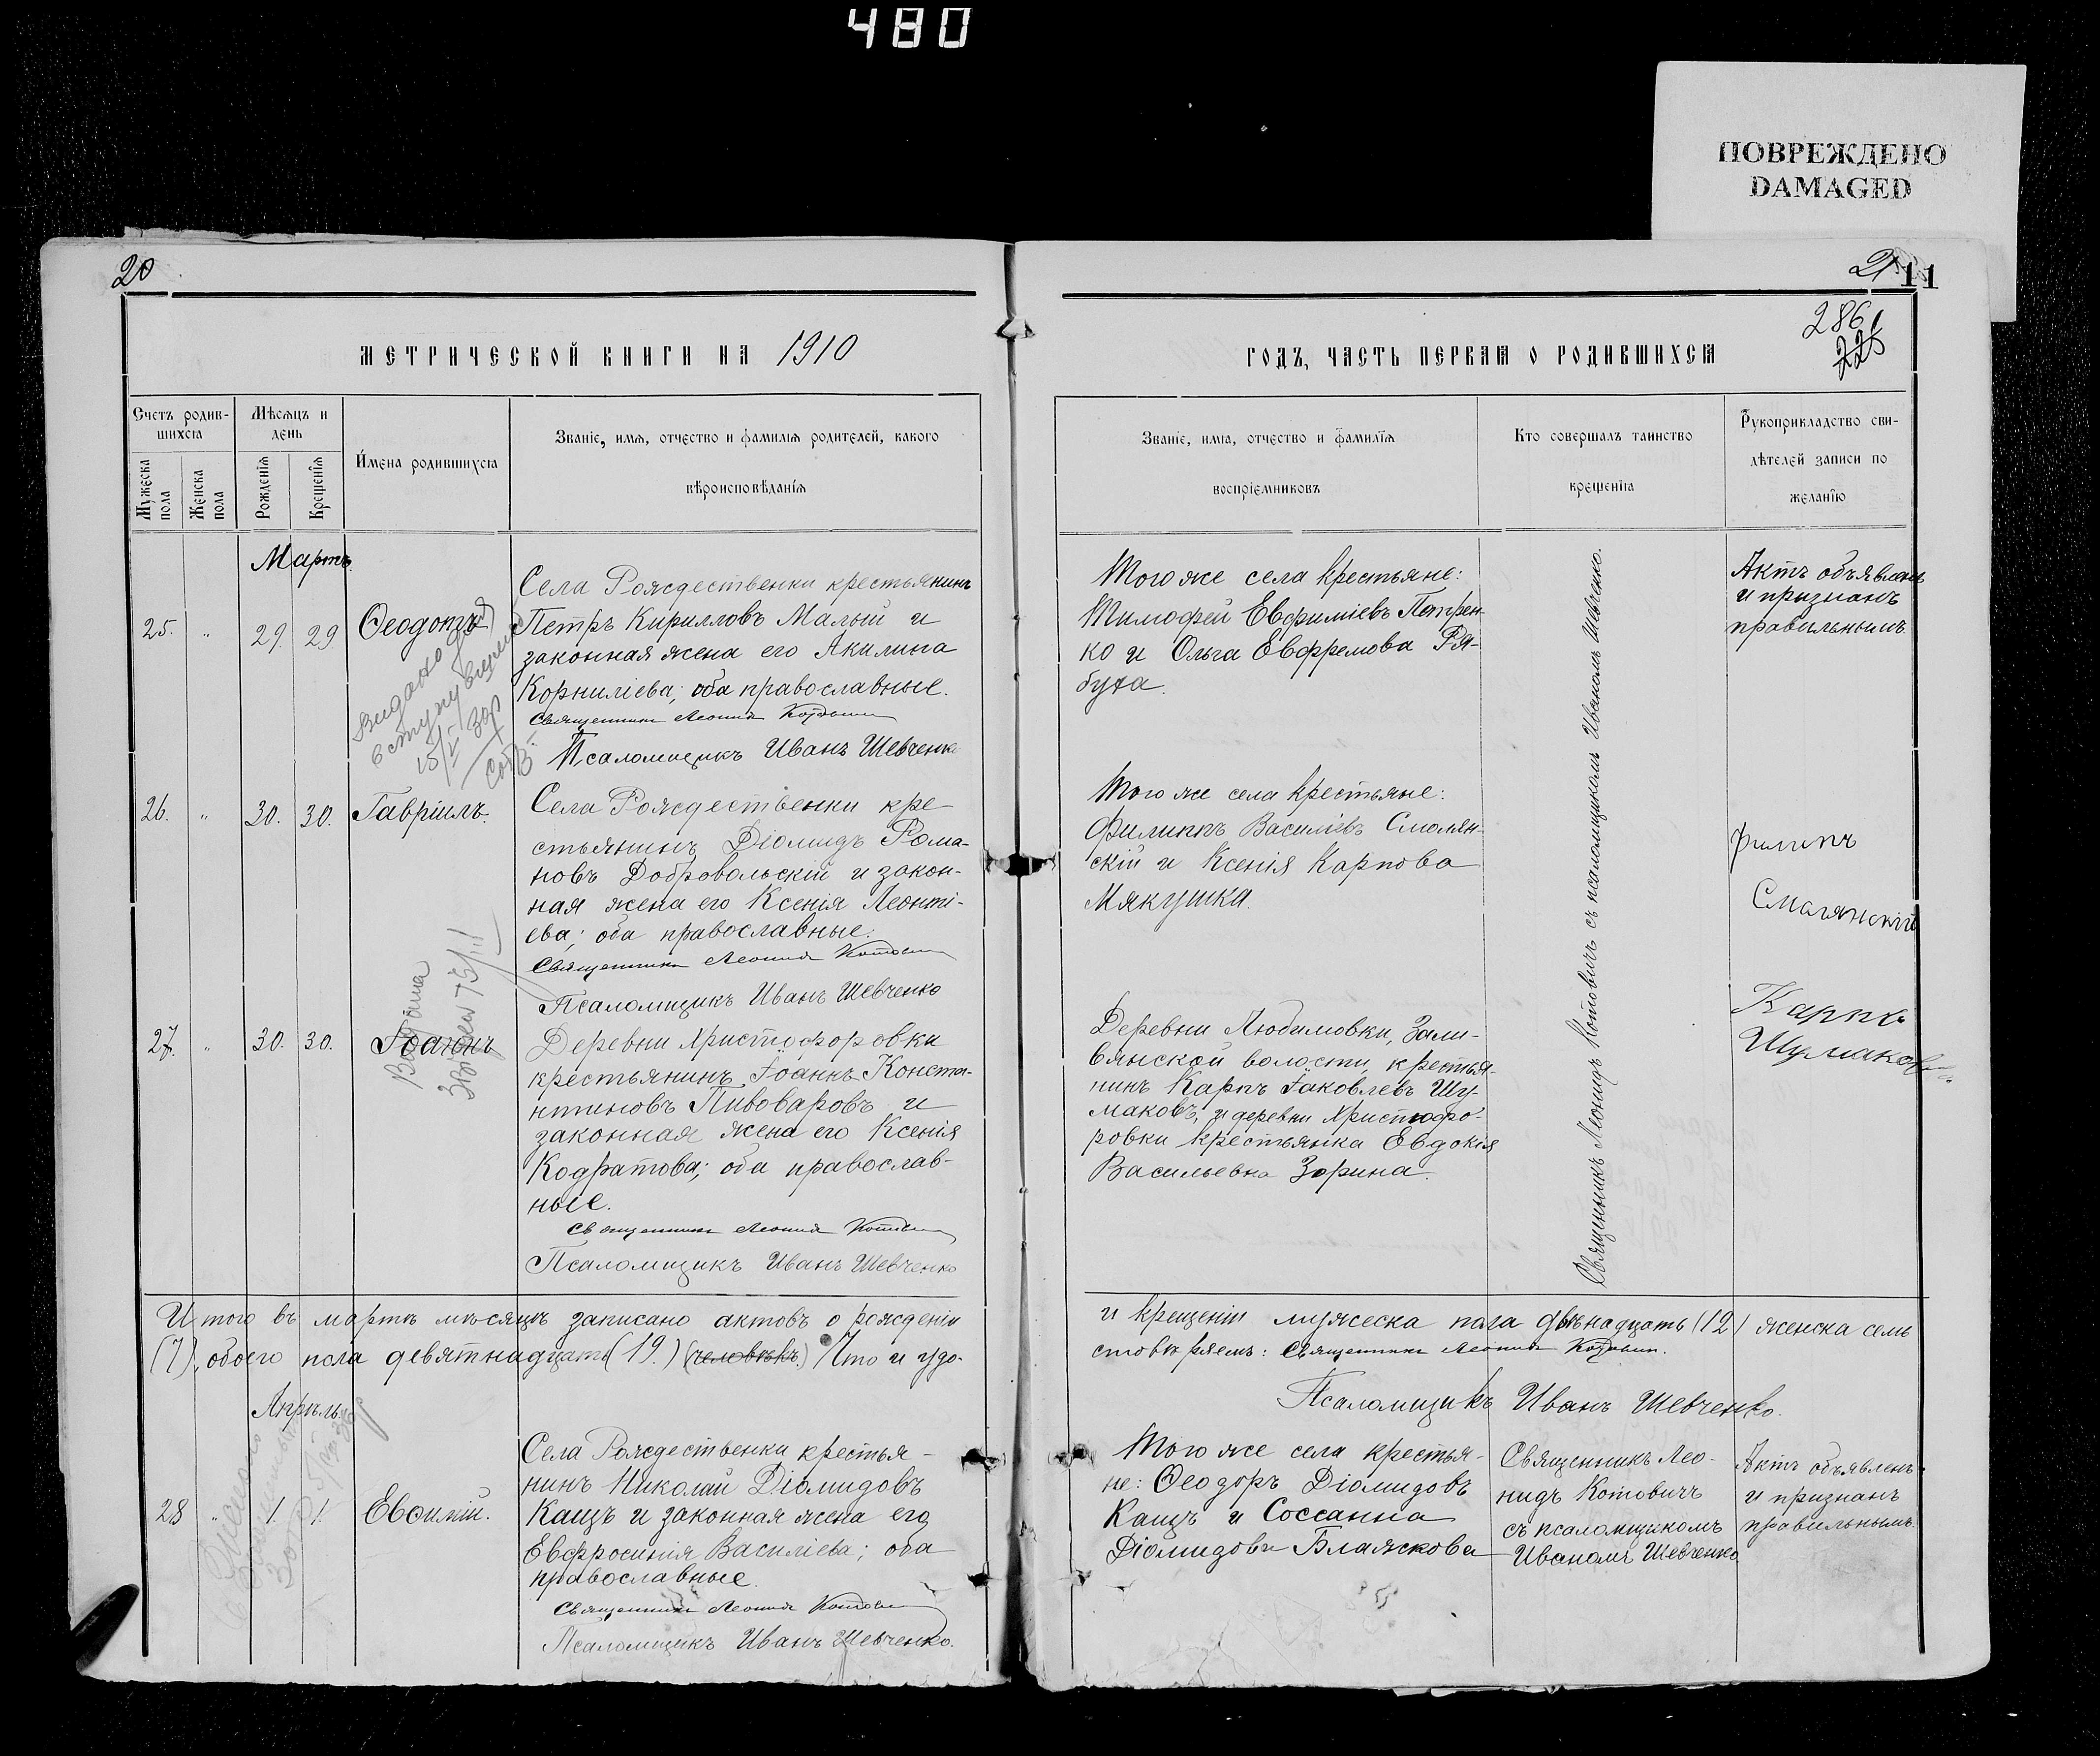 480
ПОВРЕЖДЕНО
DAMAGED
20
МЕТРИЧЕСКОЙ КНИГИ НА 1910
Счетъ родив-
шихся
Мѣсяцъ и
день
Мужеска
пола
Женска
пола
Рожденія
Крещенія
Имена родившихся
Званіе, имя, отчество и фамилія родителей, какого
вѣроисповѣданія
Мартъ.
25. " 29. 29 Ѳеодотъ
Села Рождественки крестьянинъ
Петръ Кирилловъ Малый и
законная жена его Акилина
Корниліева; оба православные.
Священникъ Леонидъ Котовичъ
Псаломщикъ Иванъ Шевченко
15/V
26. " 30. 30. Гавріилъ.
Села Рождественки кре
стьянинъ Діомидъ Рома-
новъ Добровольскій и закон-
ная жена его Ксенія Леонті-
ева; оба православные.
Священникъ Леонидъ Котовичъ
Псаломщикъ Иванъ Шевченко
27. " 30. 30. Іоаннъ
Деревни Христофоровки
крестьянинъ Іоаннъ Конста-
нтиновъ Пивоваровъ и
законная жена его Ксенія
Кодратова; оба православ-
ные.
Священникъ Леонидъ Котовичъ
Псаломщикъ Иванъ Шевченко
Итого въ мартѣ мѣсяцѣ записано актовъ о рожденіи
(7), обоего пола девятнадцать (19.) (человѣкъ.) Что и удо-
Апрѣль.
28 " 1. 1. Евсимій.
Села Рождественки крестья-
нинъ Николай Діомидовъ
Кащъ и законная жена его
Евфросинія Василіева; оба
православные.
Священникъ Леонидъ Котовичъ
Псаломщикъ Иванъ Шевченко.
21 11
286
225
ГОДЪ, ЧАСТЬ ПЕРВАЯ О РОДИВШИХСЯ
Званіе, имя, отчество и фамилія
воспріемниковъ
Кто совершалъ таинство
крещенія
Рукоприкладство сви-
дѣтелей записи по
желанію
Того же села крестьяне:
Тимофей Евфиміевъ Петрен-
ко и Ольга Евфремова Ря-
буха.
Актъ объявленъ
и признанъ
правильнымъ.
Того же села крестьяне:
Филиппъ Василіевъ Смолян-
скій и Ксенія Карпова
Мякушка.
Филипъ
Смолянскій
Деревни Любимовки, Зали-
вянской волости, крестья-
нинъ Карпъ Іаковлевъ Шу-
маковъ, и деревни Христофо-
ровки крестьянка Евдокія
Васильевна Зорина.
Карпъ
Шумаковъ
Священникъ Леонидъ Котовичъ съ псаломщикомъ Иваномъ Шевченко.
и крещеніи мужеска пола двѣнадцать (12) женска семь
стовѣряемъ: Священникъ Леонидъ Котовичъ.
Псаломщикъ Иванъ Шевченко.
Того же села крестья-
не: Ѳеодоръ Діомидовъ
Кащъ и Соссанна
Діомидова Блажскова
Священникъ Лео-
нидъ Котовичъ
съ псаломщикомъ
Иваномъ Шевченко
Актъ объявленъ
и признанъ
правильнымъ.